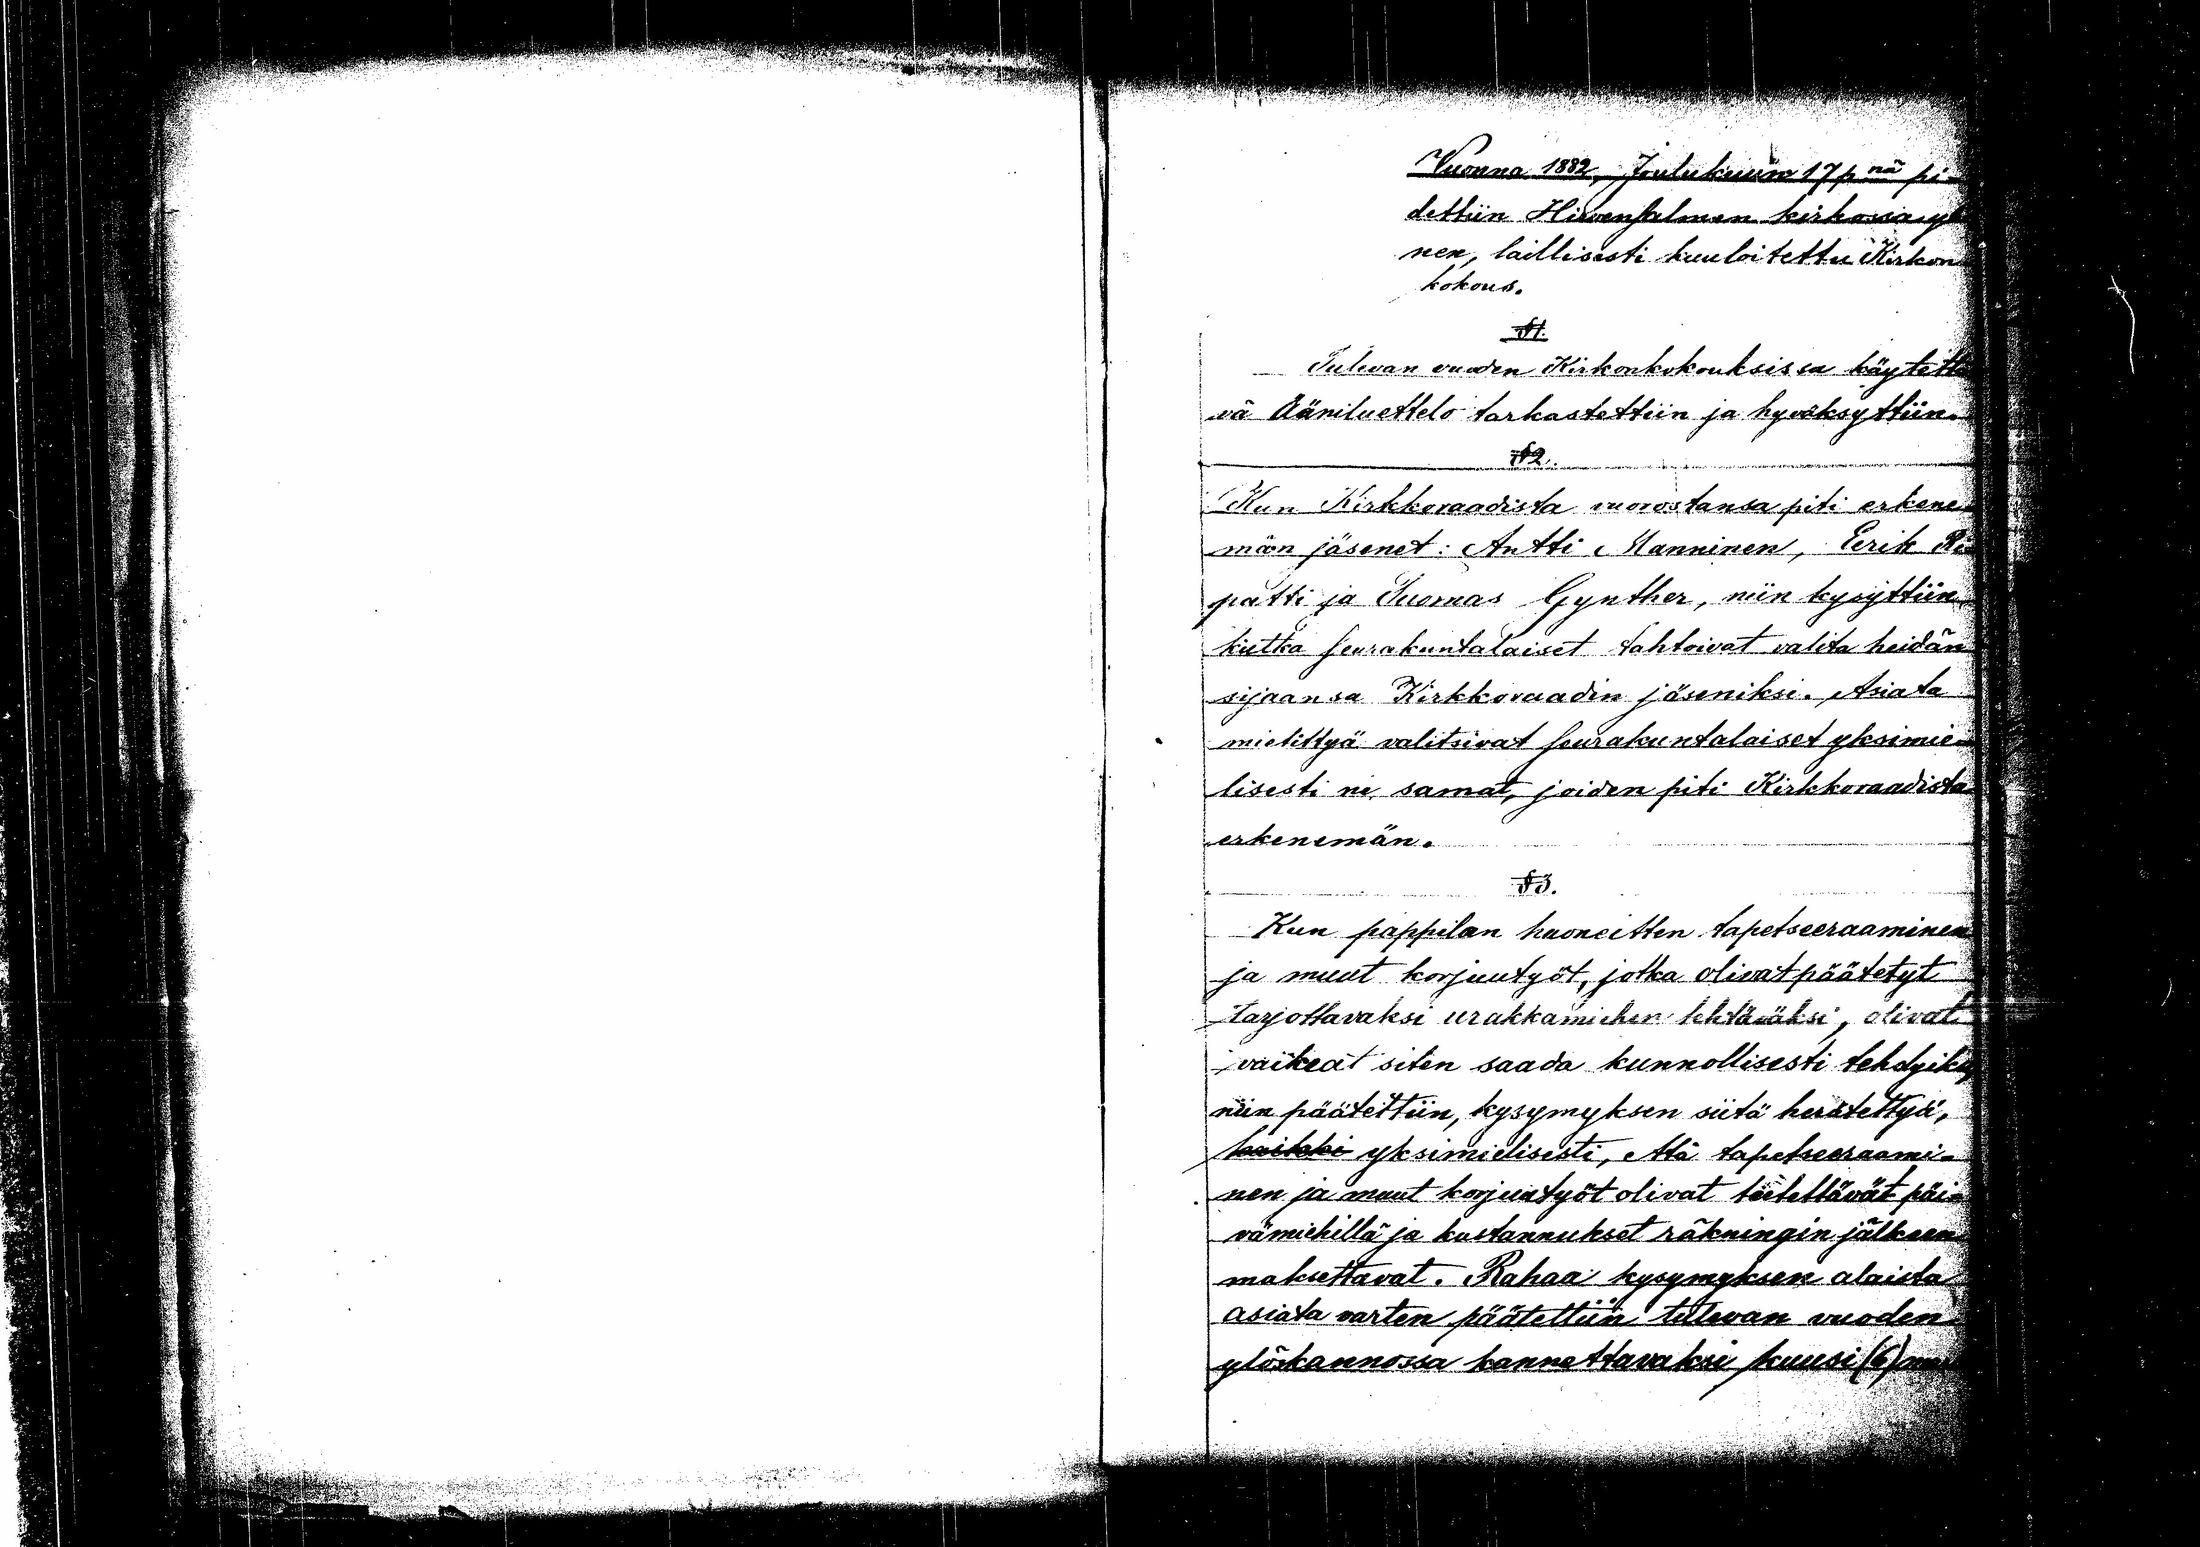 Vuonna 1882, Joulukuun 17 p:nä pi-
dettiin Hirvensalmen kirkossa yh
nen, laillisesti kuuloitettu Kirkon
kokous.
§1.
Tulevan vuoden Kirkonkokouksissa käytettä
vä Ääniluettelo tarkastettiin ja hyväksyttiin.
§2.
Kun Kirkkoraadista vuorostansa piti erkene-
män jäsenet: Antti Manninen, Eerik Ri-
patti ja Tuomas Gynther, niin kysyttiin,
kutka seurakuntalaiset tahtoivat valita heidän
sijaansa Kirkkoraadin jäseniksi. Asiata
mietittyä valitsivat seurakuntalaiset yksimie-
lisesti ne samat, joiden piti Kirkkoraadista
erkenemän.
§3.
Kun pappilan huoneitten tapetseeraaminen
ja muut korjuutyöt, jotka olivat päätetyt
tarjottavaksi urakkamiehen tehtäväksi, olivat
vaikeat siten saada kunnollisesti tehdyiksi,
niin päätettiin, kysymyksen siitä herätettyä,
kaikki yksimielisesti, että tapetseeraami-
nen ja muut korjuutyöt olivat teetettävät päi-
vämiehillä ja kustannukset räkningin jälkeen
maksettavat. Rahaa kysymyksen alaista
asiata varten päätettiin tulevan vuoden
ylöskannossa kannettavaksi kuusi (6)